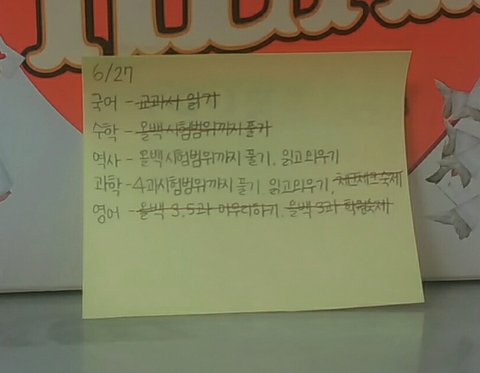 6/27
국어 - 교과서 읽기
수학 - 올백시험범위까지 풀기
역사 - 올백시험범위까지 풀기, 읽고외우기
과학 - 4과시험범위까지 풀기, 읽고외우기, 숙제
영어 - 올백 3.5과 마무리하기, 올백 3과 학원숙제